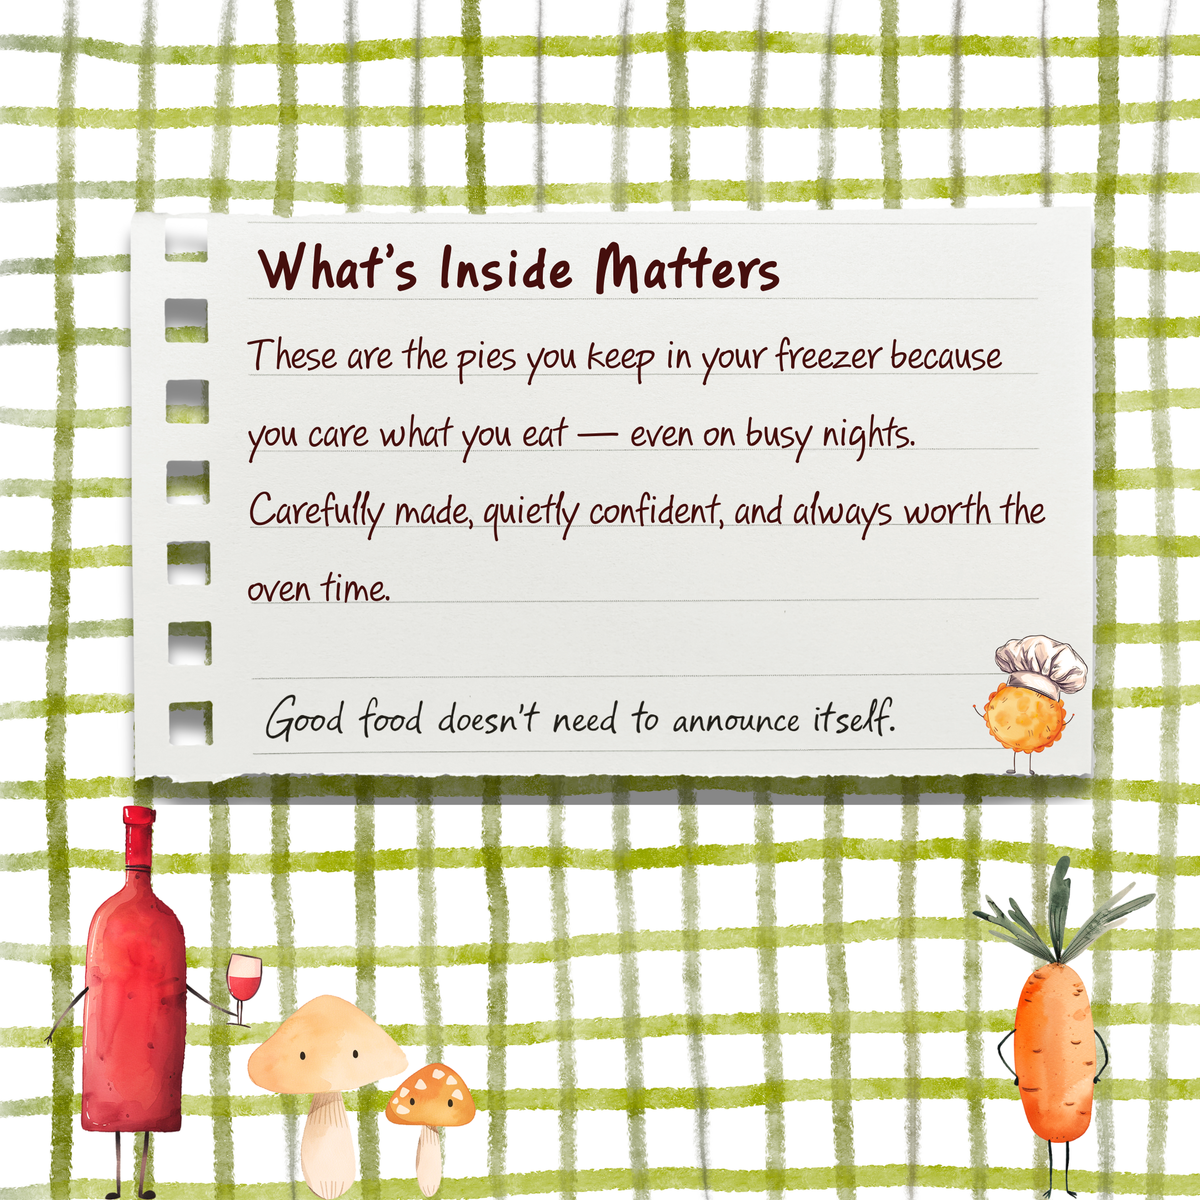 What's Inside Matters
These are the pies you keep in your freezer because
you care what you eat — even on busy nights.
Carefully made, quietly confident, and always worth the
oven time.
Good food doesn't need to announce itself.